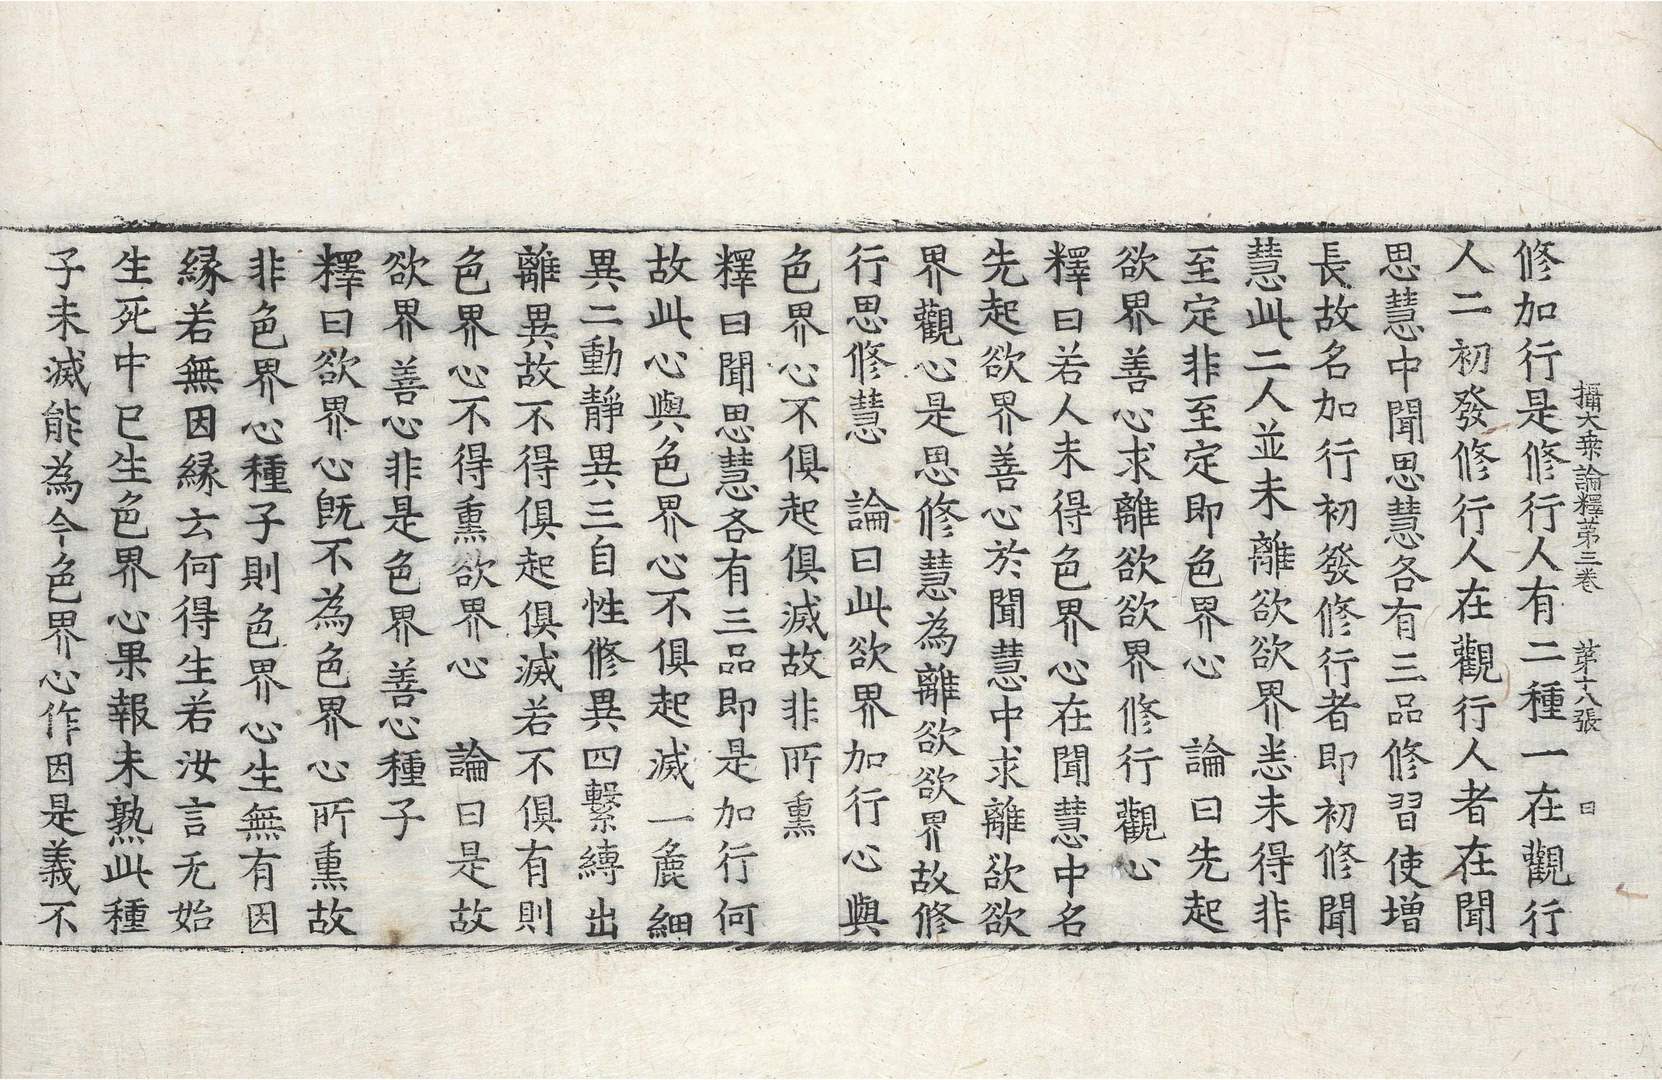 攝大乘論釋第三卷　第十八張　日
修加行是修行人有二種一在觀行
人二初發修行人在觀行人者在聞
思慧中聞思慧各有三品修習使增
長故名加行初發修行者即初修聞
慧此二人並未離欲欲界恚未得非
至定非至定即色界心　論曰先起
欲界善心求離欲欲界修行觀心
釋曰若人未得色界心在聞慧中名
先起欲界善心於聞慧中求離欲欲
界觀心是思修慧為離欲欲界故修
行思修慧　論曰此欲界加行心與
色界心不俱起俱滅故非所熏
釋曰聞思慧各有三品即是加行何
故此心與色界心不俱起滅一麁細
異二動靜異三自性修異四繫縛出
離異故不得俱起俱滅若不俱有則
色界心不得熏欲界心　論曰是故
欲界善心非是色界善心種子
釋曰欲界心既不為色界心所熏故
非色界心種子則色界心生無有因
縁若無因縁云何得生若汝言无始
生死中已生色界心果報未熟此種
子未滅能為今色界心作因是義不